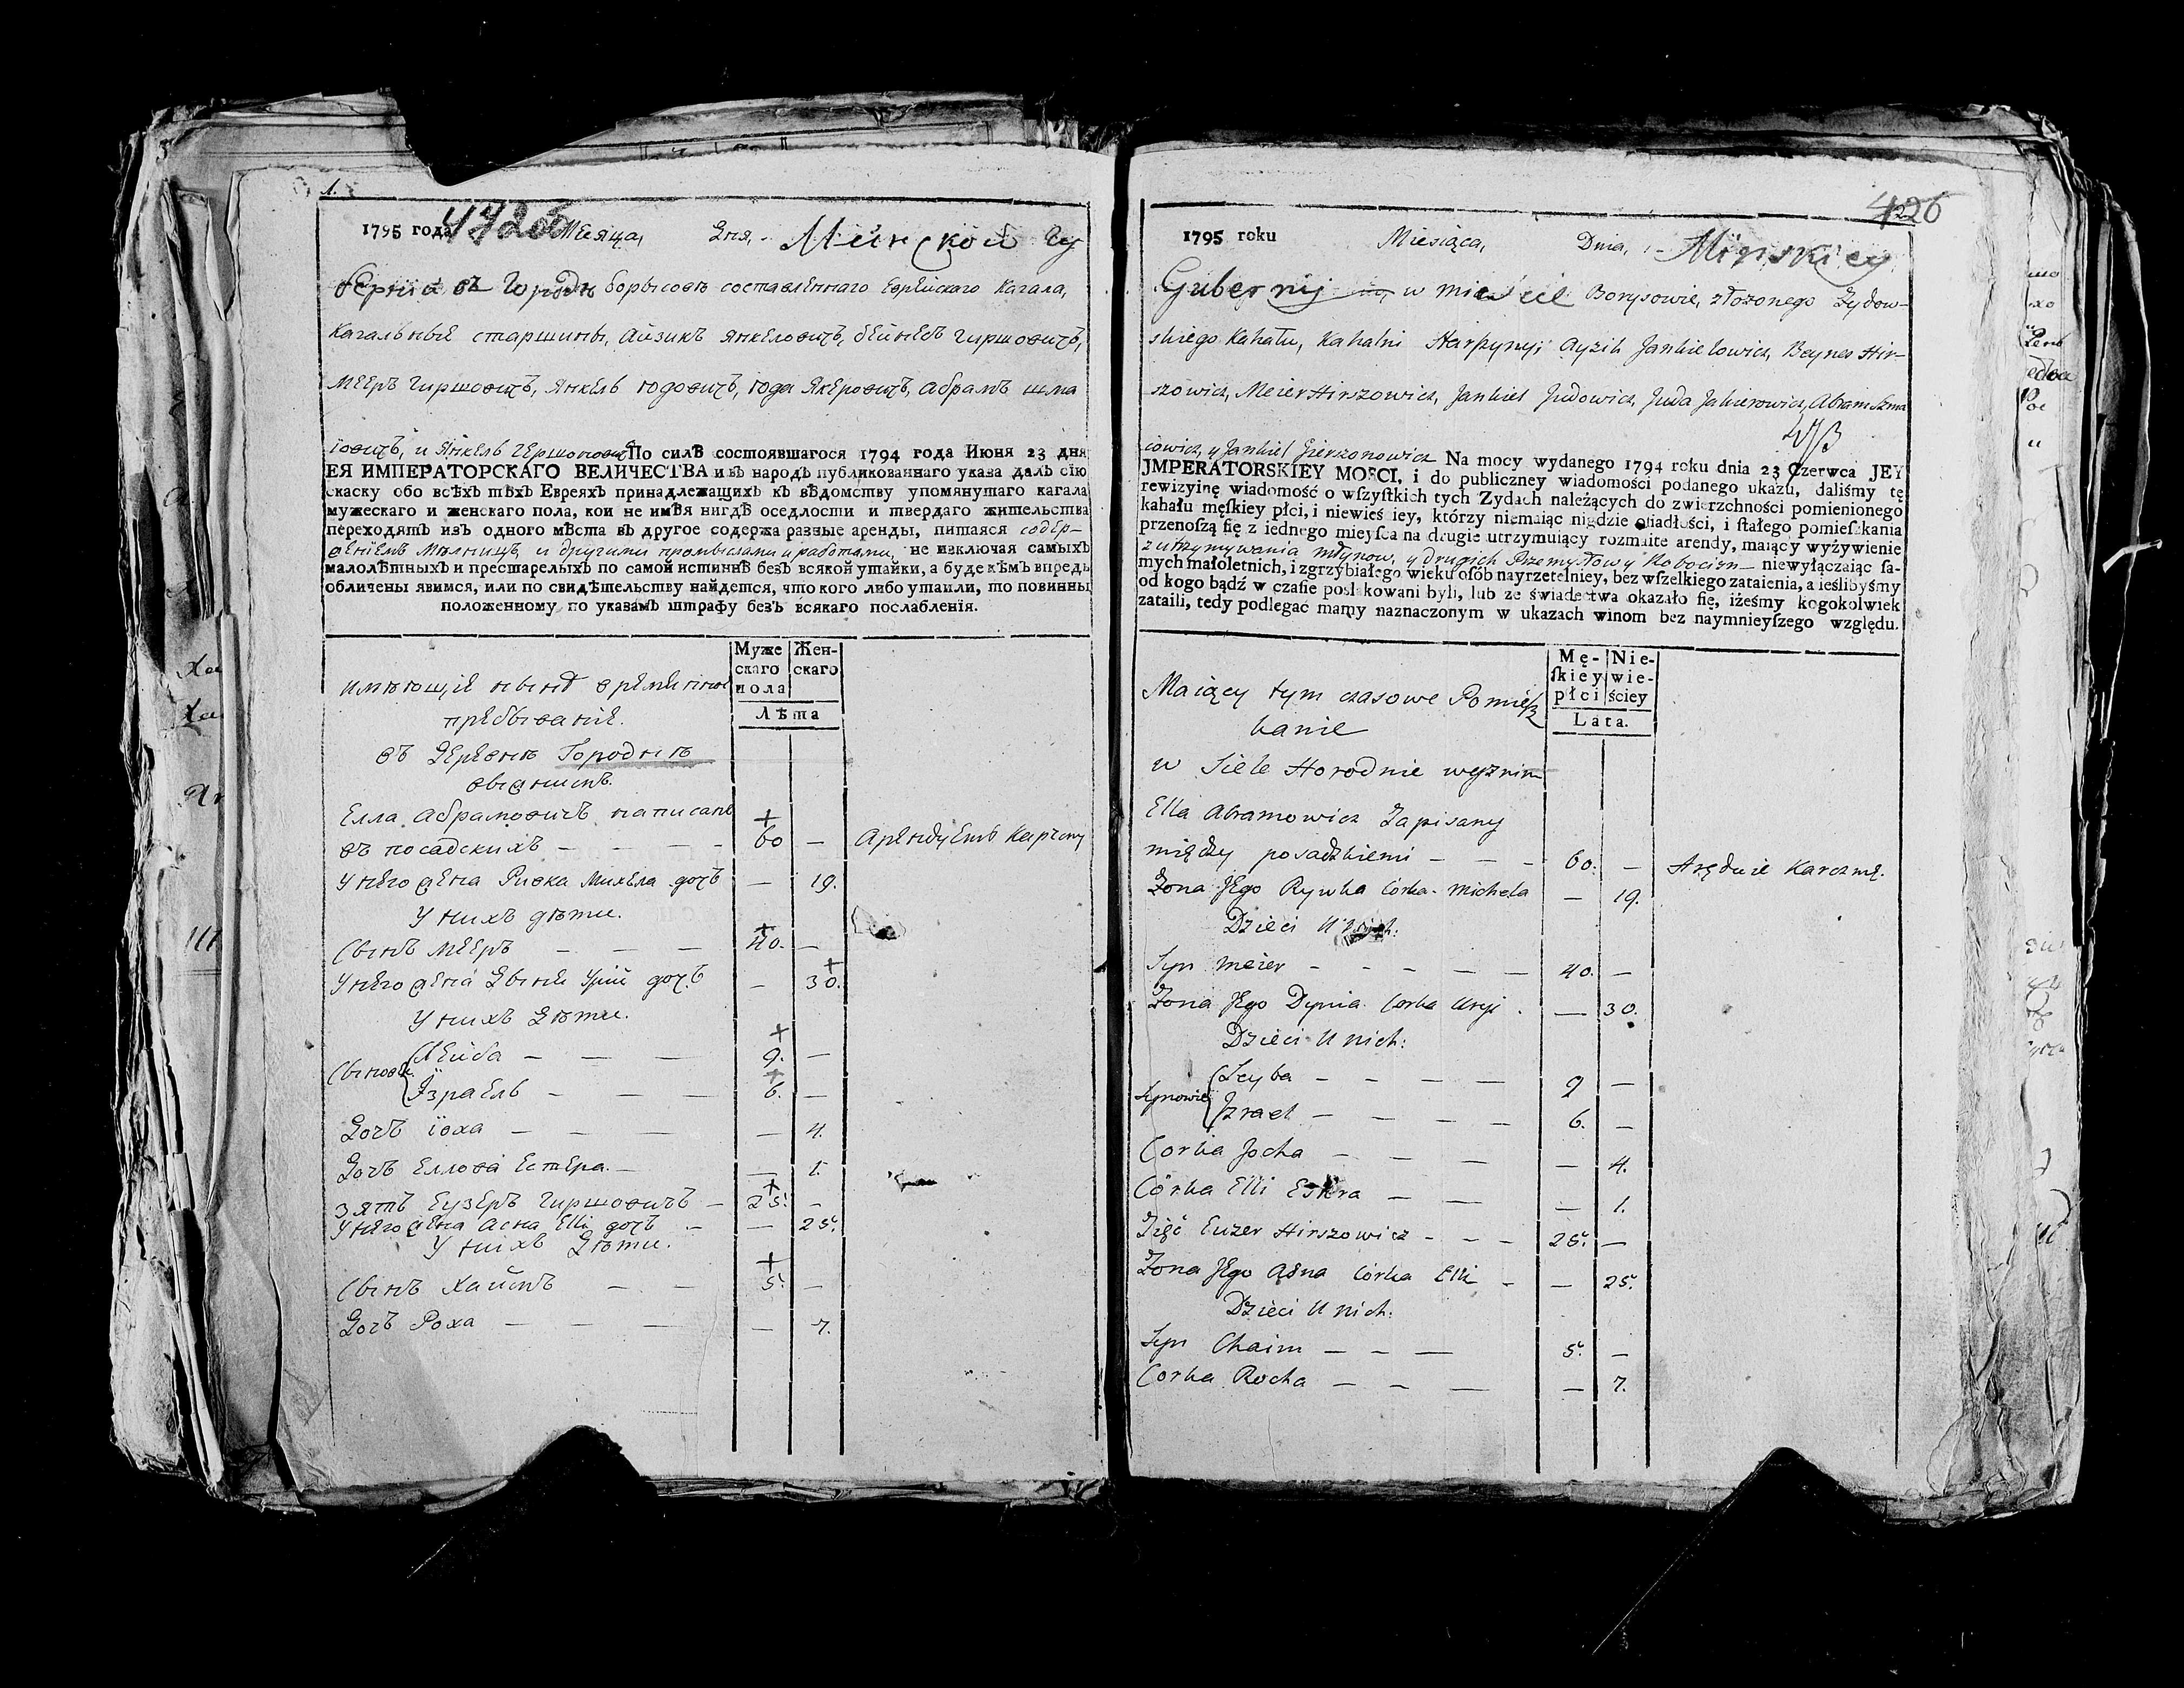 1.
1795 года Месяца, Дня, Минской Гу
берніи въ городѣ Борысовѣ составленнаго Еврейскаго Кагала,
Кагальные старшины, Айзикъ Янкеловичъ, Бейнесъ Гиршовичъ,
Мееръ Гиршовичъ, Янкель Юдовичъ, Юда Якеровичъ, Абрамъ Шма
іовичъ, и Янкель Гершоновичъ По силѣ состоявшагося 1794 года Июня 23 дня
ЕЯ ИМПЕРАТОРСКАГО ВЕЛИЧЕСТВА и въ народъ публикованнаго указа далъ сію
скаску обо всѣхъ тѣхъ Евреяхъ принадлежащихъ къ вѣдомству упомянутаго кагала
мужескаго и женскаго пола, кои не имѣя нигдѣ оседлости и твердаго жительства
переходятъ изъ одного мѣста въ другое содержа разные аренды, питаяся содер-
жаніемъ мѣлницъ, и другими промыслами и работами, не изключая самыхъ
малолѣтныхъ и престарелыхъ по самой истиннѣ безъ всякой утайки, а буде кѣмъ впредь
обличены явимся, или по свидѣтельству найдется, что кого либо утаили, то повинны
положенному по указамъ штрафу безъ всякаго послабленія.
Муже
скаго
пола
Жен-
скаго
Лѣта
Имѣющіе нынѣ временное
пребываніе.
въ Деревнѣ Городнѣ
Елла Абрамовичъ написанъ
въ посадскихъ — — — — 60 — Арендуетъ Карчму
У него жена Ривка Михела дочь — 19.
У нихъ дѣти.
Сынъ Мееръ — — — 40. —
У него жена Дыня Урїи дочь — 30.
У нихъ Дѣти.
Сыновья Лейба — — — 9. —
Ізраель — — — 6. —
Дочь Іоха — — — — 4.
Дочь Еллова Естера. — — 1.
Зять Еузеръ Гиршовичъ — 25. —
У него жена Асна Elli дочь — — 25.
У нихъ Дѣти.
Сынъ Хаимъ — — 5. —
Дочь Роха — — — — 7.
426
1795 roku Miesiąca, Dnia, Minskiey
Gubernij w mieście Borysowie, złożonego Zydow-
skiego Kahału, Kahalni Starszyny; Ayzik Jankielowicz, Beynes Hir-
szowicz, Meier Hirszowicz, Jankiel Judowicz, Juda Jakierowicz, Abram Szma
iowicz, y Jankiel Gierszonowicz Na mocy wydanego 1794 roku dnia 23 Czerwca JEY
JMPERATORSKIEY MOSCI, i do publiczney wiadomości podanego ukazu, daliśmy tę
rewizyinę wiadomość o wſzyſtkich tych Zydach należących do zwierzchności pomienionego
kahału męſkiey płci, i niewieś iey, którzy niemaiąc nigdzie oſiadłości, i ſtałego pomieſzkania
przenoſzą ſię z iednego mieyſca na drugie utrzymuiący rozmaite arendy, maiący wyżywienie
z utrzymywania młynow, y drugich Przemysłow y Robocizn — niewyłączaiąc ſa-
mych małoletnich, i zgrzybiałego wieku osób nayrzetelniey, bez wſzelkiego zataienia, a ieślibyśmy
od kogo bądź w czaſie poszlakowani byli, lub ze świadectwa okazało ſię, iżeśmy kogokolwiek
zataili, tedy podlegać mamy naznaczonym w ukazach winom bez naymnieyſzego względu.
Mę-
ſkiey
płci
Nie-
wie-
ściey
Lata.
Maiący tym czasowe Pomiesz
kanie
w Siele Horodnie
Ella Abramowicz Zapisany
między posadzkiemi — — — 60. — Aręduie Karczmę.
Zona Jego Rywka Córka Michela — 19.
Dzieci U nich:
Syn Meier — — — — — 40. —
Zona Jego Dynia Corka Uryi — 30.
Dzieci U nich:
Synowie Leyba — — — — 9 —
Jzrael — — — — 6. —
Corka Jocha — — — — 4.
Córka Elli Estera — — — 1.
Zięć Euzer Hirszowicz — — — 25. —
Zona Jego Asna Córka Elli — — 25.
Dzieci U nich:
Syn Chaim — — — 5. —
Corka Rocha — — — — 7.